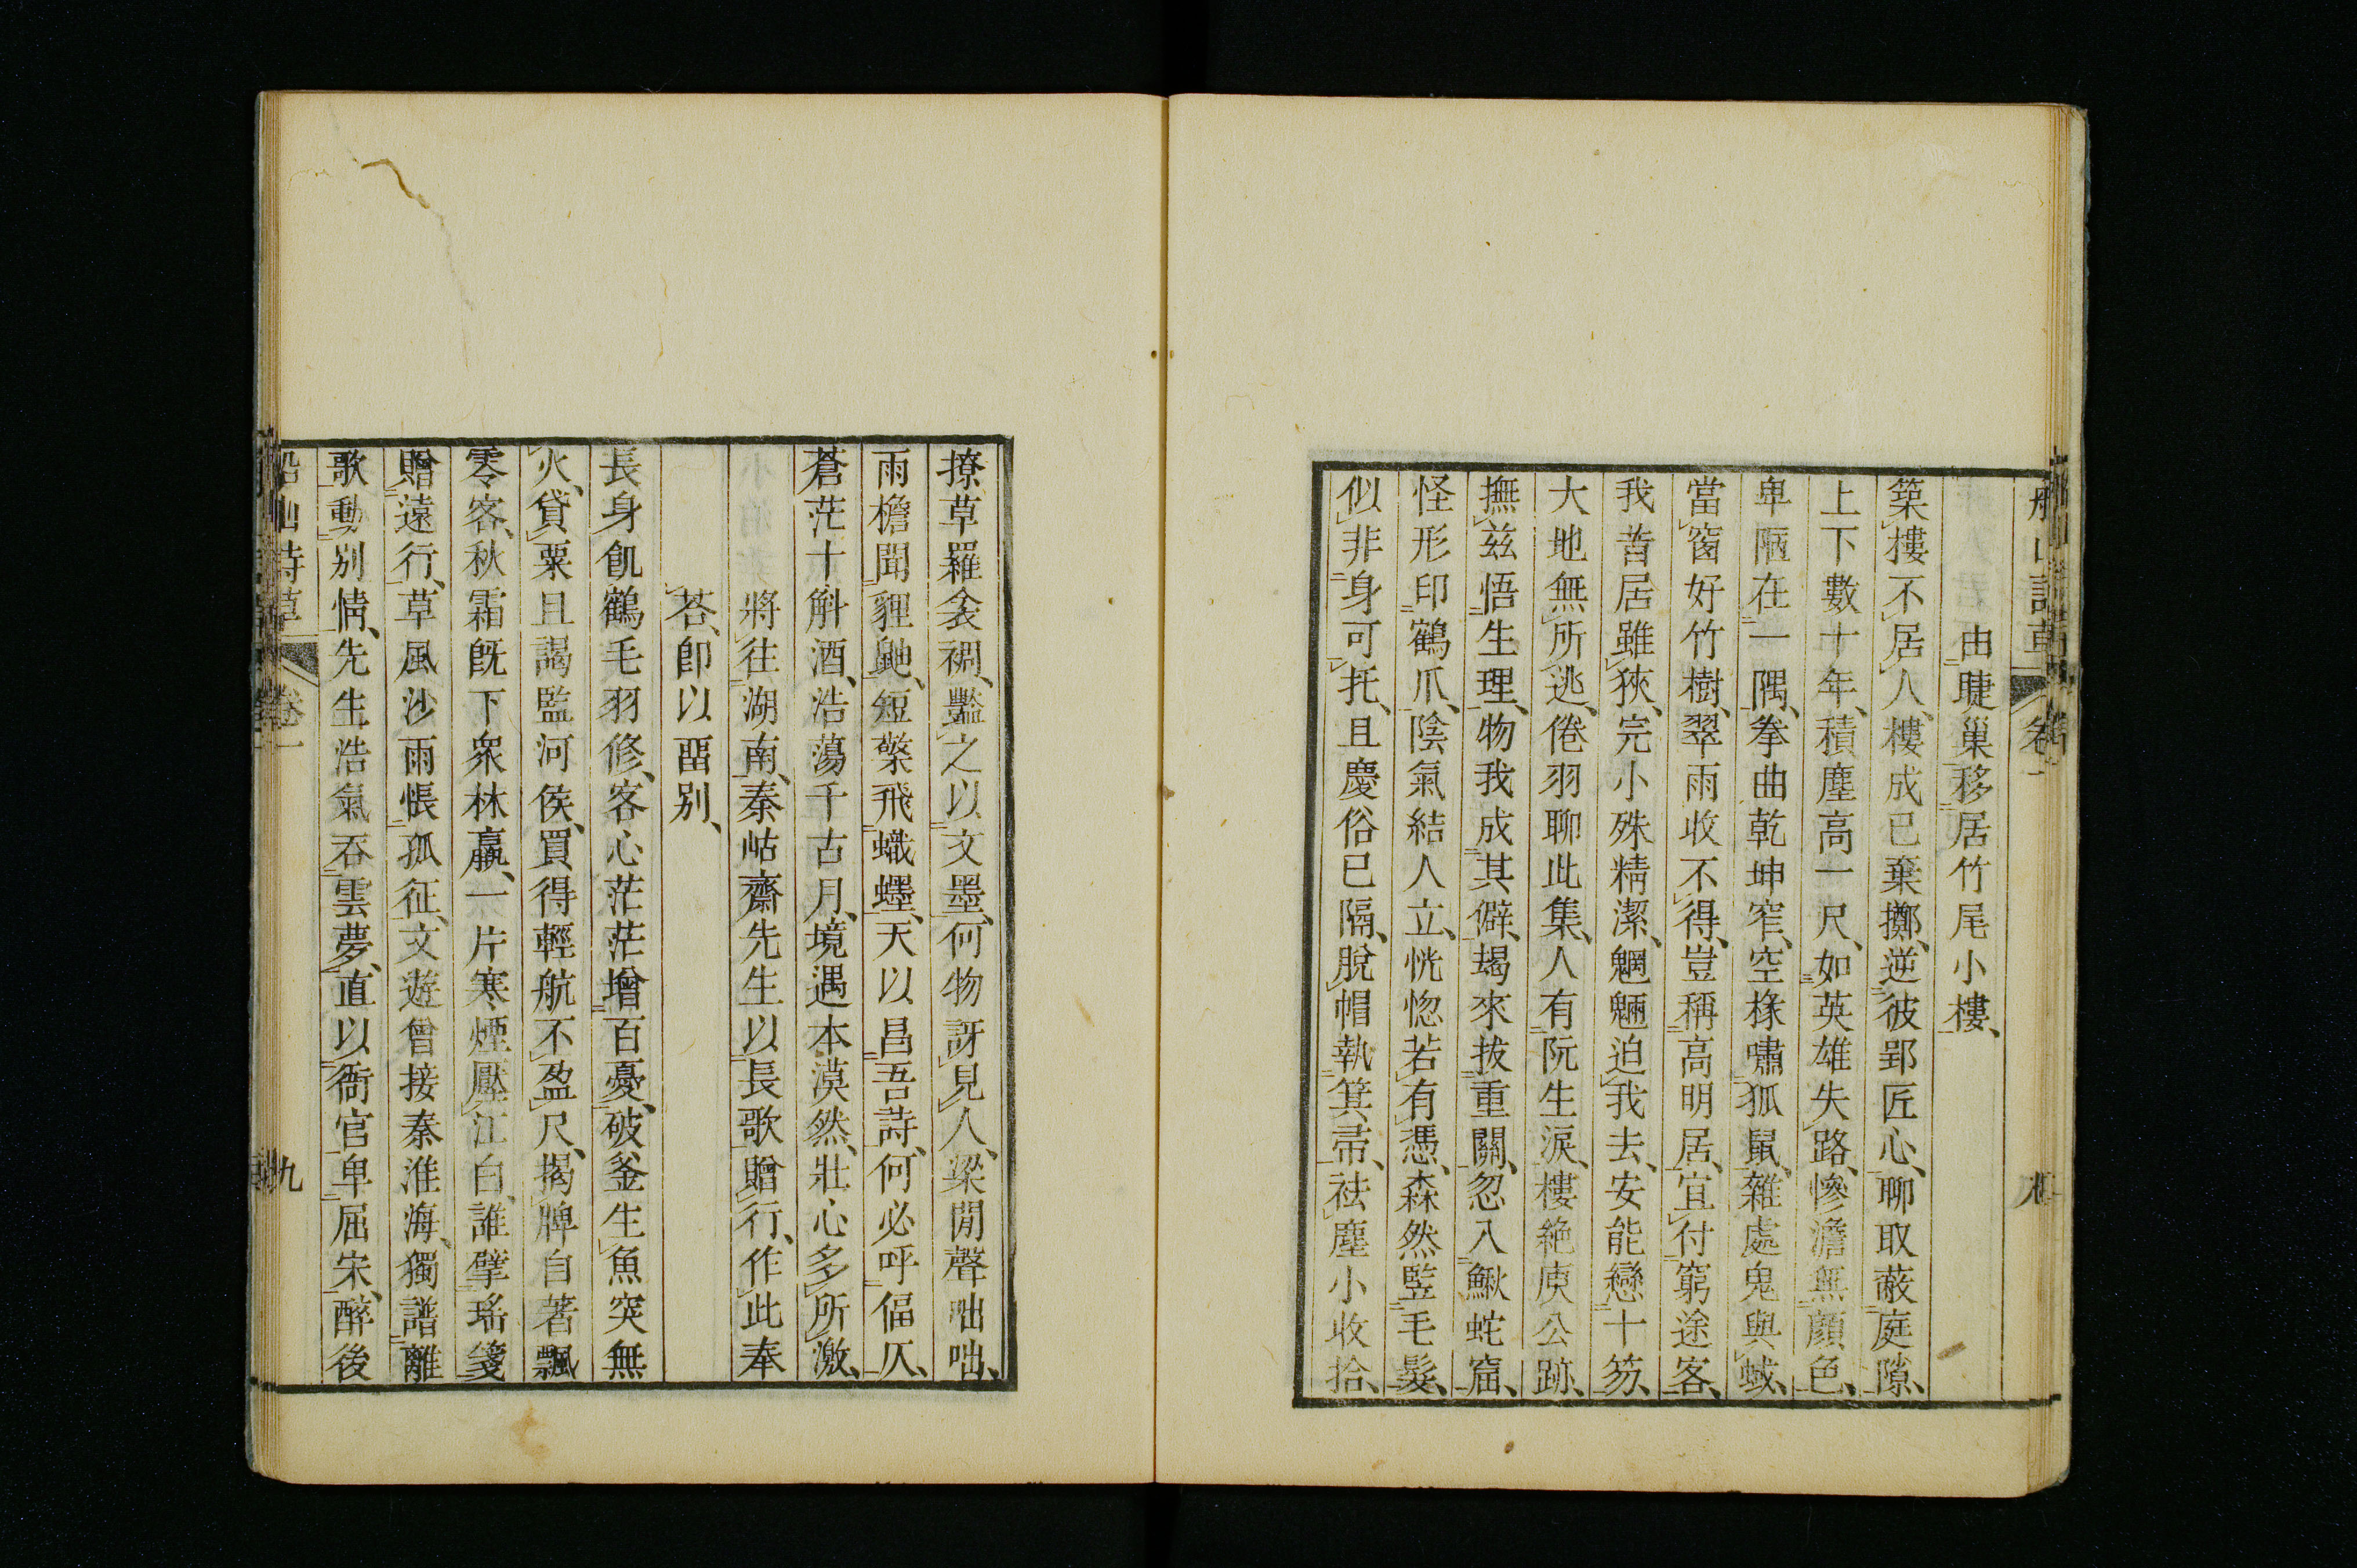 船山詩草 卷一 八
由睫巢移居竹尾小樓
築樓不居人樓成已棄擲逆彼郢匠心聊取蔽庭隙
上下數十年積塵高一尺如英雄失路慘澹無顏色
卑陋在一隅拳曲乾坤窄空椽嘯狐鼠雜處鬼與蜮
當窗好竹樹翠雨收不得豈稱高明居宜付窮途客
我昔居雖狹完小殊精潔魍魎迫我去安能戀十笏
大地無所逃倦羽聊此集人有阮生淚樓絶庾公跡
撫茲悟生理物我成其僻朅來拔重關忽入鰍蛇窟
怪形印鶴爪陰氣結人立恍惚若有憑森然豎毛髮
似非身可托且慶俗已隔脫帽執箕帚袪塵小收拾
撩草羅衾裯豔之以文墨何物訝見人梁閒聲咄咄
雨檐聞貍鼬短檠飛蠘蠌天以昌吾詩何必呼偪仄
蒼茫十斛酒浩蕩千古月境遇本漠然壯心多所激
將往湖南秦岵齋先生以長歌贈行作此奉
荅卽以畱别
長身飢鶴毛羽修客心茫茫增百憂破釜生魚突無
火貸粟且謁監河侯買得輕航不盈尺揭牌自著飄
零客秋霜旣下衆林羸一片寒煙壓江白誰擘瑤箋
贈遠行草風沙雨悵孤征文遊曾接秦淮海獨譜離
歌動别情先生浩氣吞雲夢直以衙官卑屈宋醉後
船山詩草 卷一 九